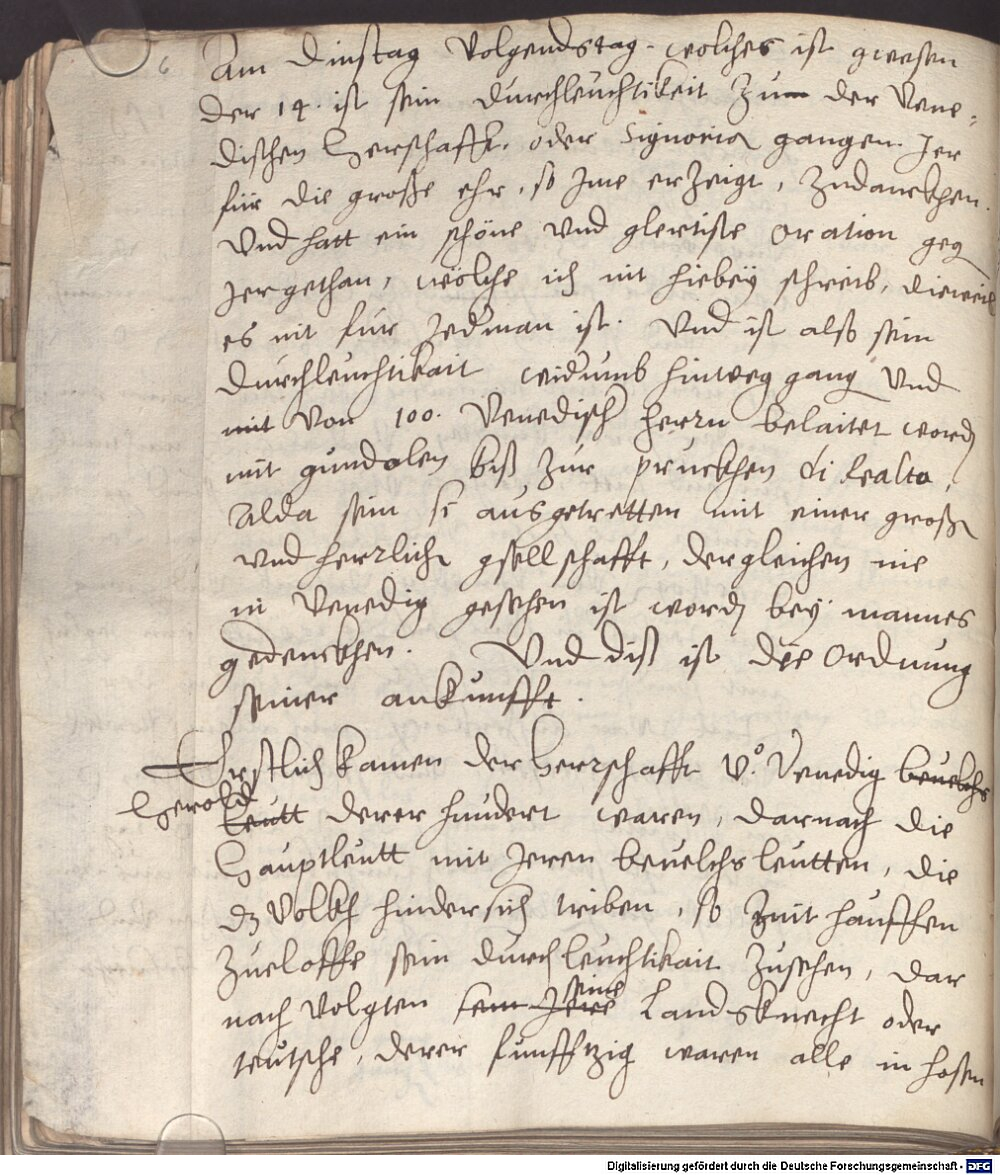 6
Am Dinstag Volgendstag. wolches ist gwesen
der 14. ist sein Durchleuchtikeit Zum der Vene-
dischen Herschafft. oder Signoria gangen. Jer
für die große ehr, so Jme erzeigt, Zudanckhen.
Vnd hatt ein schöne vnd glertiste Oration geg
Jer gethan, wölche ich nit hiebey schreib, dieweil
es nit für Jedman ist. Vnd ist also sein
Durchleuchtikait widumb hinweg gang Vnd
mit Von 100. Venedisch herrn belaitet word
mit gundolen biß zur pruckhen di Realto,
Alda sein si ausgetretten mit einer groß
vnd herrlich gsellschafft, dergleichen nie
in Venedig gesehen ist word bey mannes
gedenckhen. Vnd diß ist die Ordnung
seiner ankunfft.
Erstlich kamen der Herrschafft V.o Venedig beuelchs
Herold
leutt derer hundert waren, darnach die
Hauptleutt mit Jeren beuelchsleutten, die
dz Volkh hindersich triben, so Zmit hauffen
Zueloffe sein durchleuchtikait Zusehen, dar
nach Volgten sein Jere seine Landsknecht oder
teutsche, derer funfftzig waren alle in hosen
Digitalisierung gefördert durch die Deutsche Forschungsgemeinschaft - DFG